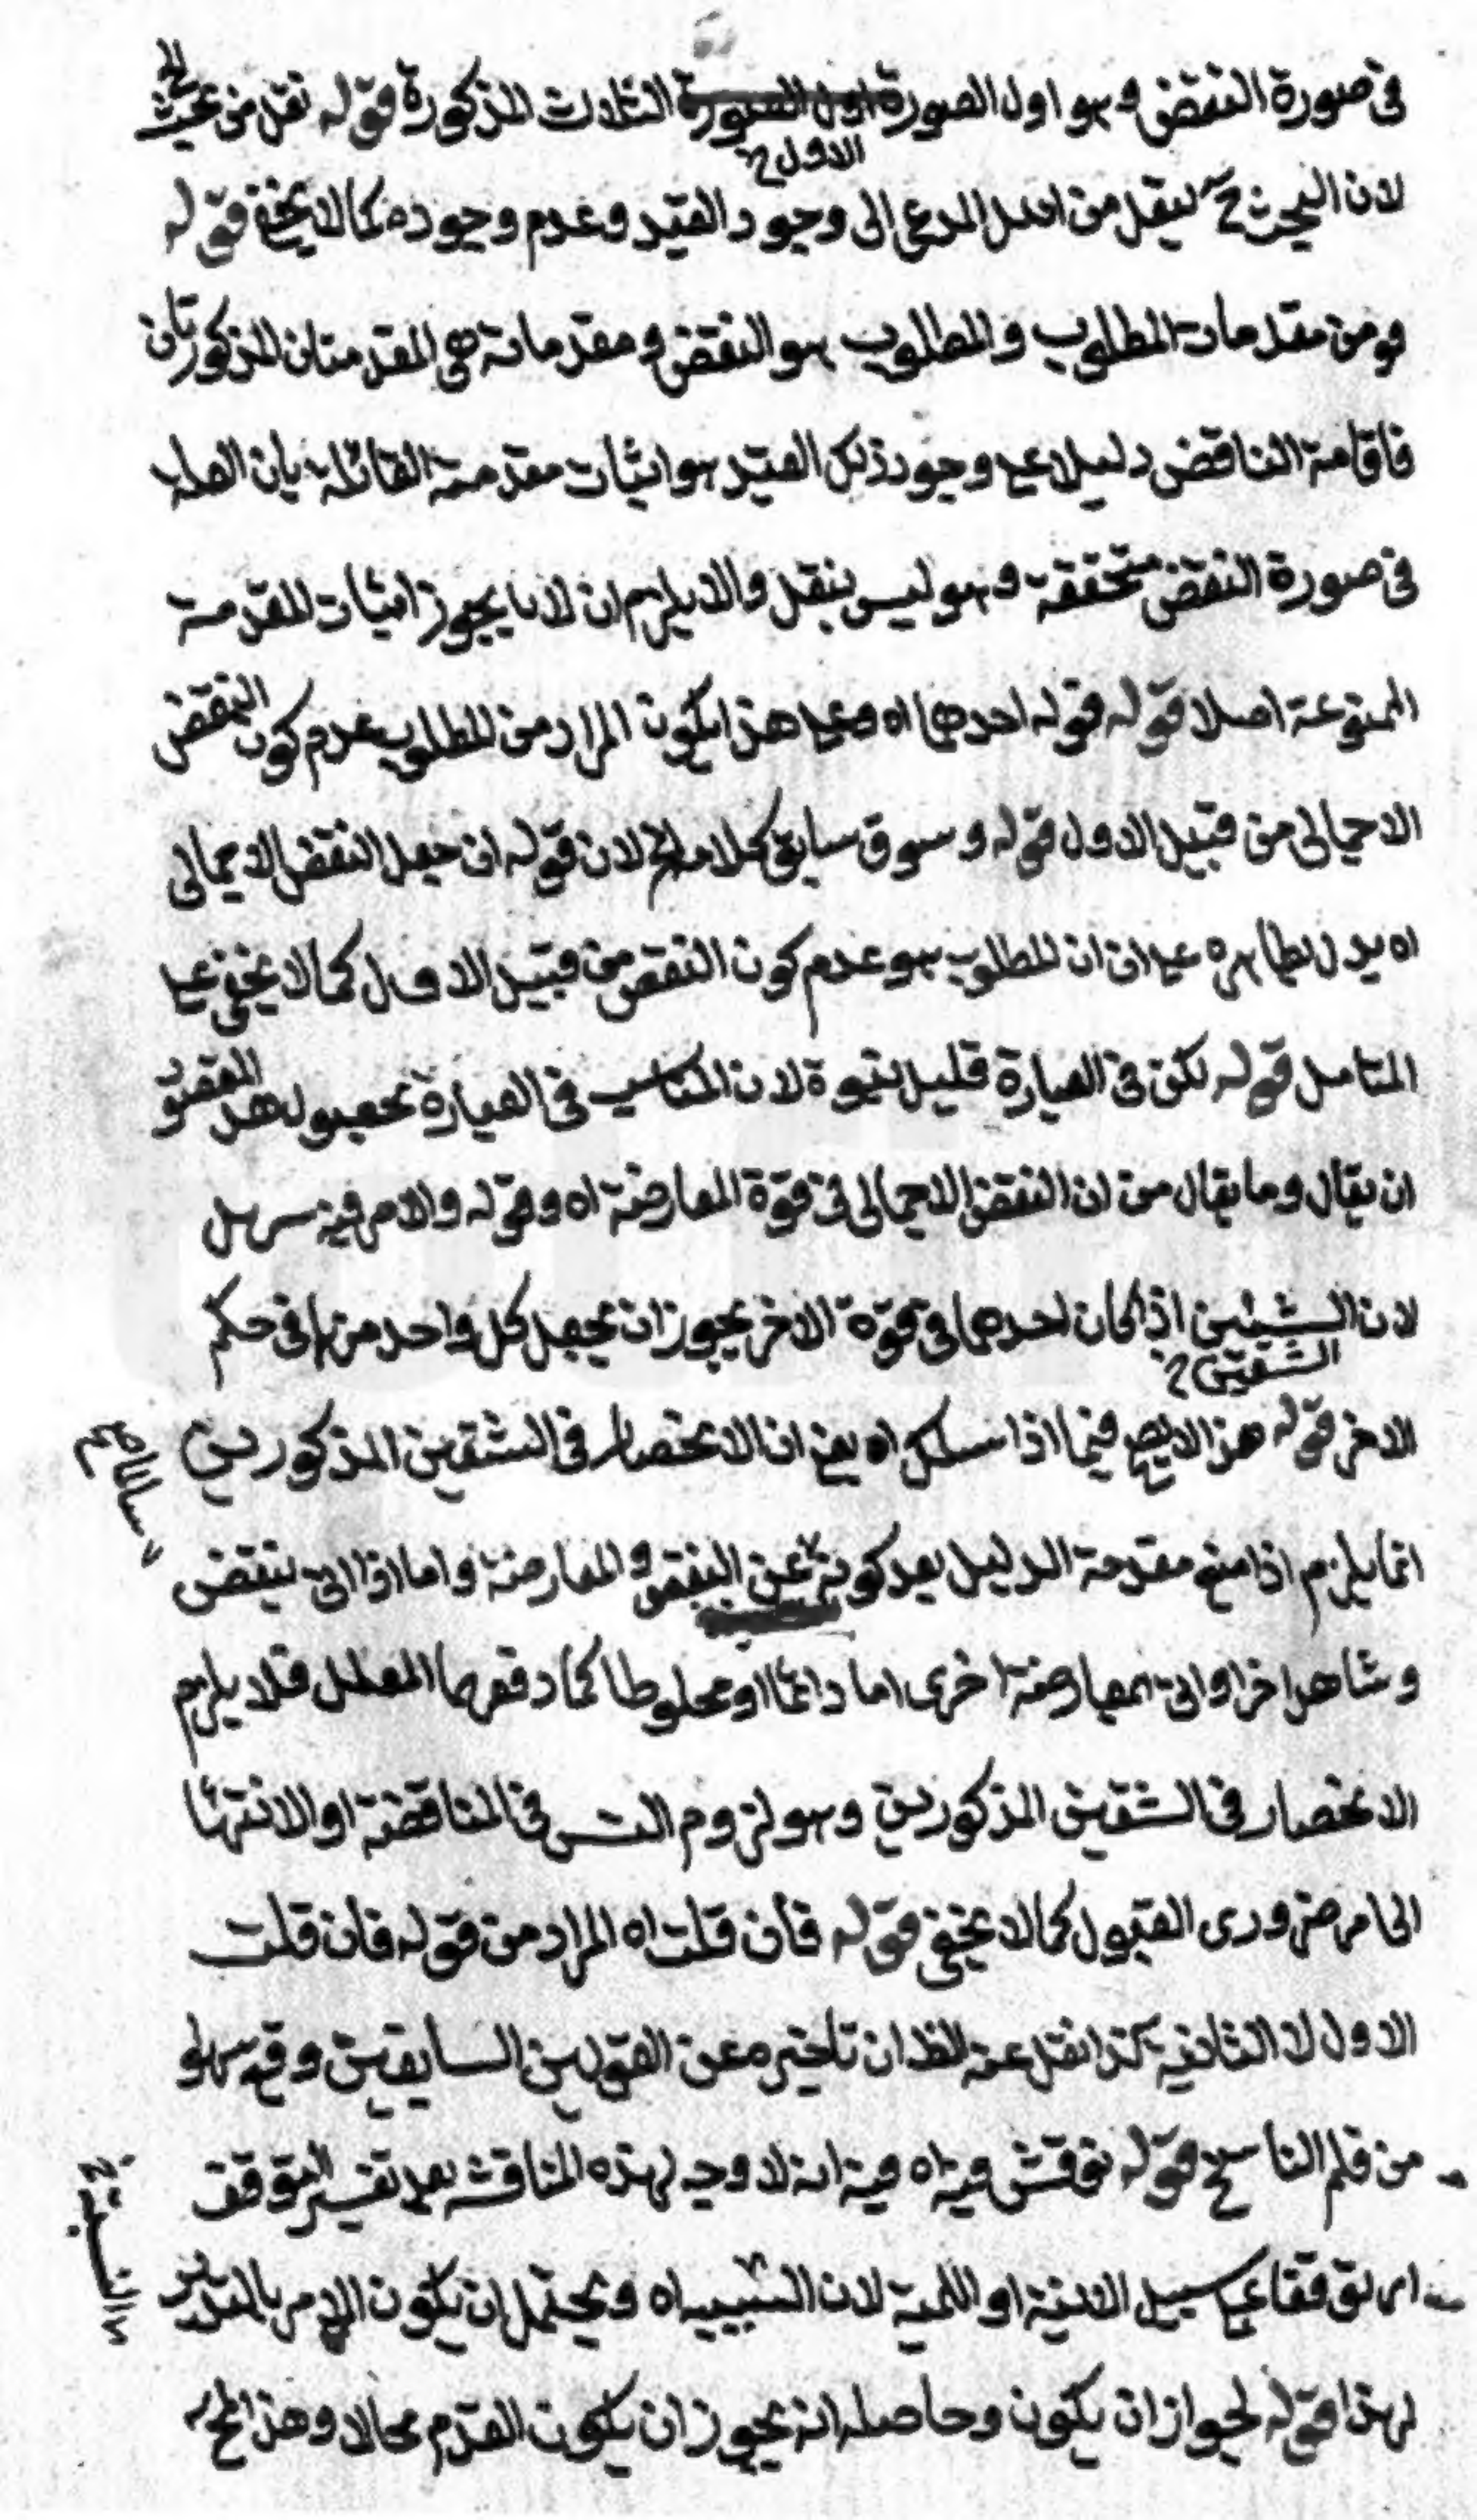 فى صورة النقض وهو اول الصورة اول الصورة الثلاث المذكورة قوله نقل من بحث الخ
الاول
لان البحث ح ينقل من اصل المدعى الى وجود القيد وعدم وجوده كما لا يخفى قوله
ومن مقدمات المطلوب والمطلوب هو النقض ومقدماته هى المقدمتان المذكورتان
فاقامة الناقض دليلا على وجود ذلك القيد هو اثبات مقدمته القائلة بان العلة
فى صورة النقض متحققة وهو ليس بنقل والا يلزم ان لا يجوز اثبات المقدمة
الممنوعة اصلا قوله قوله احدهما اه وعلى هذا يكون المراد من المطلوب عدم كون النقض
الاجمالى من قبيل الاول قوله وسوق سابق كلامه الخ لان قوله ان جعل النقض الاجمالى
اه يدل بظاهره على ان المطلوب هو عدم كون النقض من قبيل الاول كما لا يخفى على
المتامل قوله لكن فى العبارة قليل نبوة لان المناسب فى العبارة بحصول هذا المقصود
ان يقال وما يقال من ان النقض الاجمالى فى قوة المعارضة اه وقوله والامر فيه سهل
لان الشيئين اذا كان احدهما فى قوة الاخر يجوز ان يجعل كل واحد منهما فى حكم
الشقين
الاخر قوله هذا لا يصح فيما اذا سلك اه يعنى ان الانحصار فى الشقين المذكورين
انما يلزم اذا منع مقدمة الدليل بعد كونه عن النقض والمعارضة واما اذا اتى بنقض
وشاهد اخر او اتى بمعارضة اخرى اما دائما او مخلوطا كما دفعهما المعلل فلا يلزم
الانحصار فى الشقين المذكورين وهو لزوم التس فى المناقضة او الانتها
الى امر ضرورى القبول كما لا يخفى قوله فان قلت اه المراد من قوله فان قلت
الاول لا الثانى كذا نقل عنه لظ ان تاخيره عن القولين السابقين وقع سهوا
من قلم الناسخ قوله نوقش فيه اه فيه انه لا وجه لهذه المناقشة بعد تفسير التوقف
توقفا على سبيل الانية او اللمية لان السببية اه ويحتمل ان يكون الامر بالتدبر
لهذا قوله لجواز ان يكون وحاصله انه يجوز ان يكون القدم محالا وهذا المح